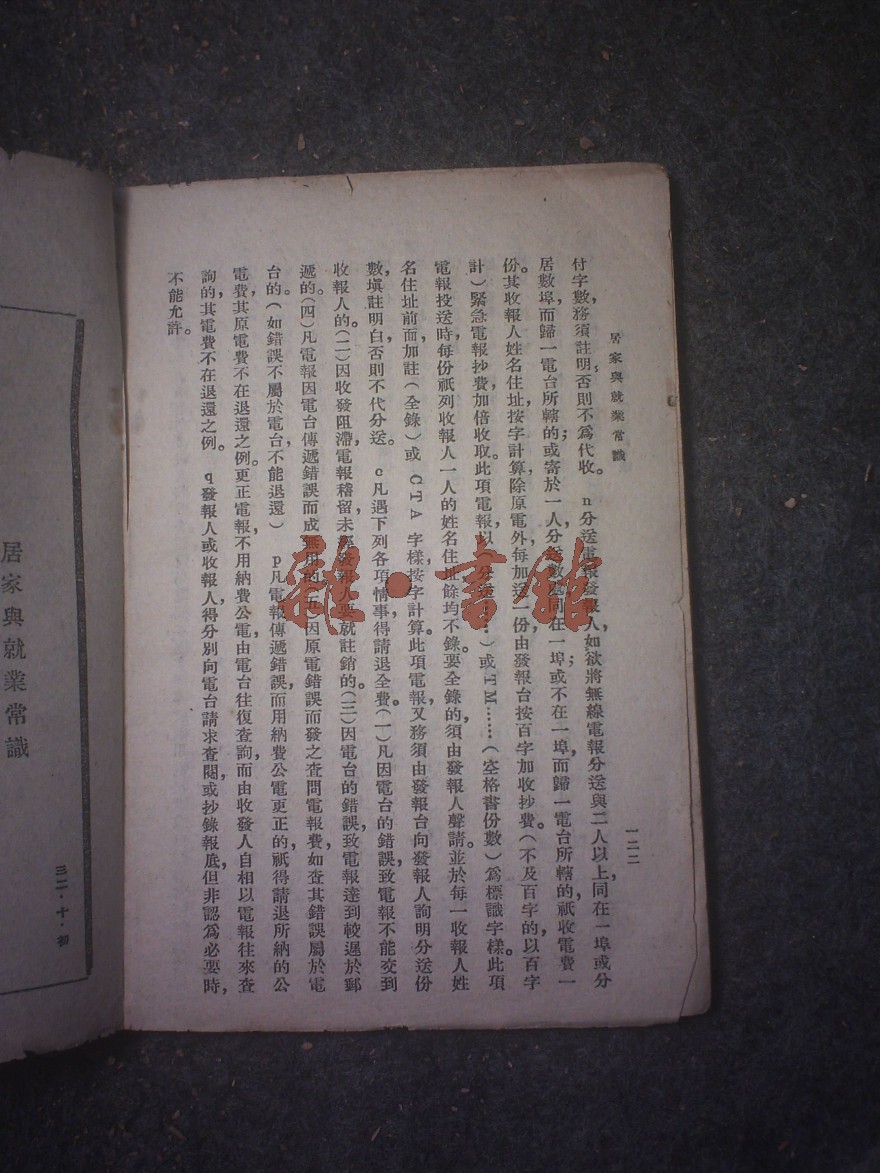 居家與就業常識
一二二
付字數，務須註明；否則不爲代收。　n分送電報發報人，如欲將無線電報分送與二人以上，同在一埠或分
居數埠，而歸一電台所轄的；或寄於一人，分送數處同在一埠；或不在一埠，而歸一電台所轄的，祇收電費一
份。其收報人姓名住址，按字計算，除原電外每加送一份由發報台按百字加收抄費。（不及百字的以百字
計）緊急電報抄費，加倍收取。此項電報，以（分送……）或TM……（空格書份數）爲標識字樣。此項
電報投送時，每份祇列收報人一人的姓名住址餘均不錄。要全錄的，須由發報人聲請。並於每一收報人姓
名住址前面加註（全錄）或CTA字樣，按字計算。此項電報，又務須由發報台向發報人詢明分送份
數，塡註明白，否則不代分送。　o凡遇下列各項情事得請退全費。（一）凡因電台的錯誤，致電報不能交到
收報人的。（二）因收發阻滯，電報稽留，未經發報人要就註銷的。（三）因電台的錯誤，致電報達到較遲於郵
遞的。（四）凡電報因電台傳遞錯誤而成無用的。（五）因原電錯誤而發之查問電報費，如查其錯誤屬於電
台的。（如錯誤不屬於電台，不能退還）　p凡電報傳遞錯誤，而用納費公電更正的，祇得請退所納的公
電費，其原電費不在退還之例。更正電報，不用納費公電，由電台往復查詢，而由收發人自相以電報往來查
詢的，其電費不在退還之例。　q發報人或收報人得分別向電台請求查閱，或抄錄報底，但非認爲必要時，
不能允許。
居家與就業常識
三二·十·初
雜·書館